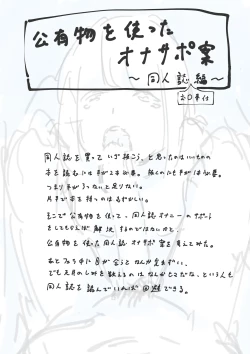 公有物を使った
オナサポ案
～同人誌編～
同人誌を買って いざ抜こう、と思ったのはいいものの
本を読むには手が2本必要。抜くのにも手が1本必要。
つまり手が3つないと足りない。
片手で本を持つのは難しい。
そこで公有物を使って、同人誌オナニーのサポート
をしてもらえば解決するのではないかと、
公有物を使った同人誌オナサポ案を考えてみた。
あとふつうに目が合うとなんか気まずい、
でも天井のしみを数えるのはなんかもったいない、という人も
同人誌を読んでいれば回避できる。